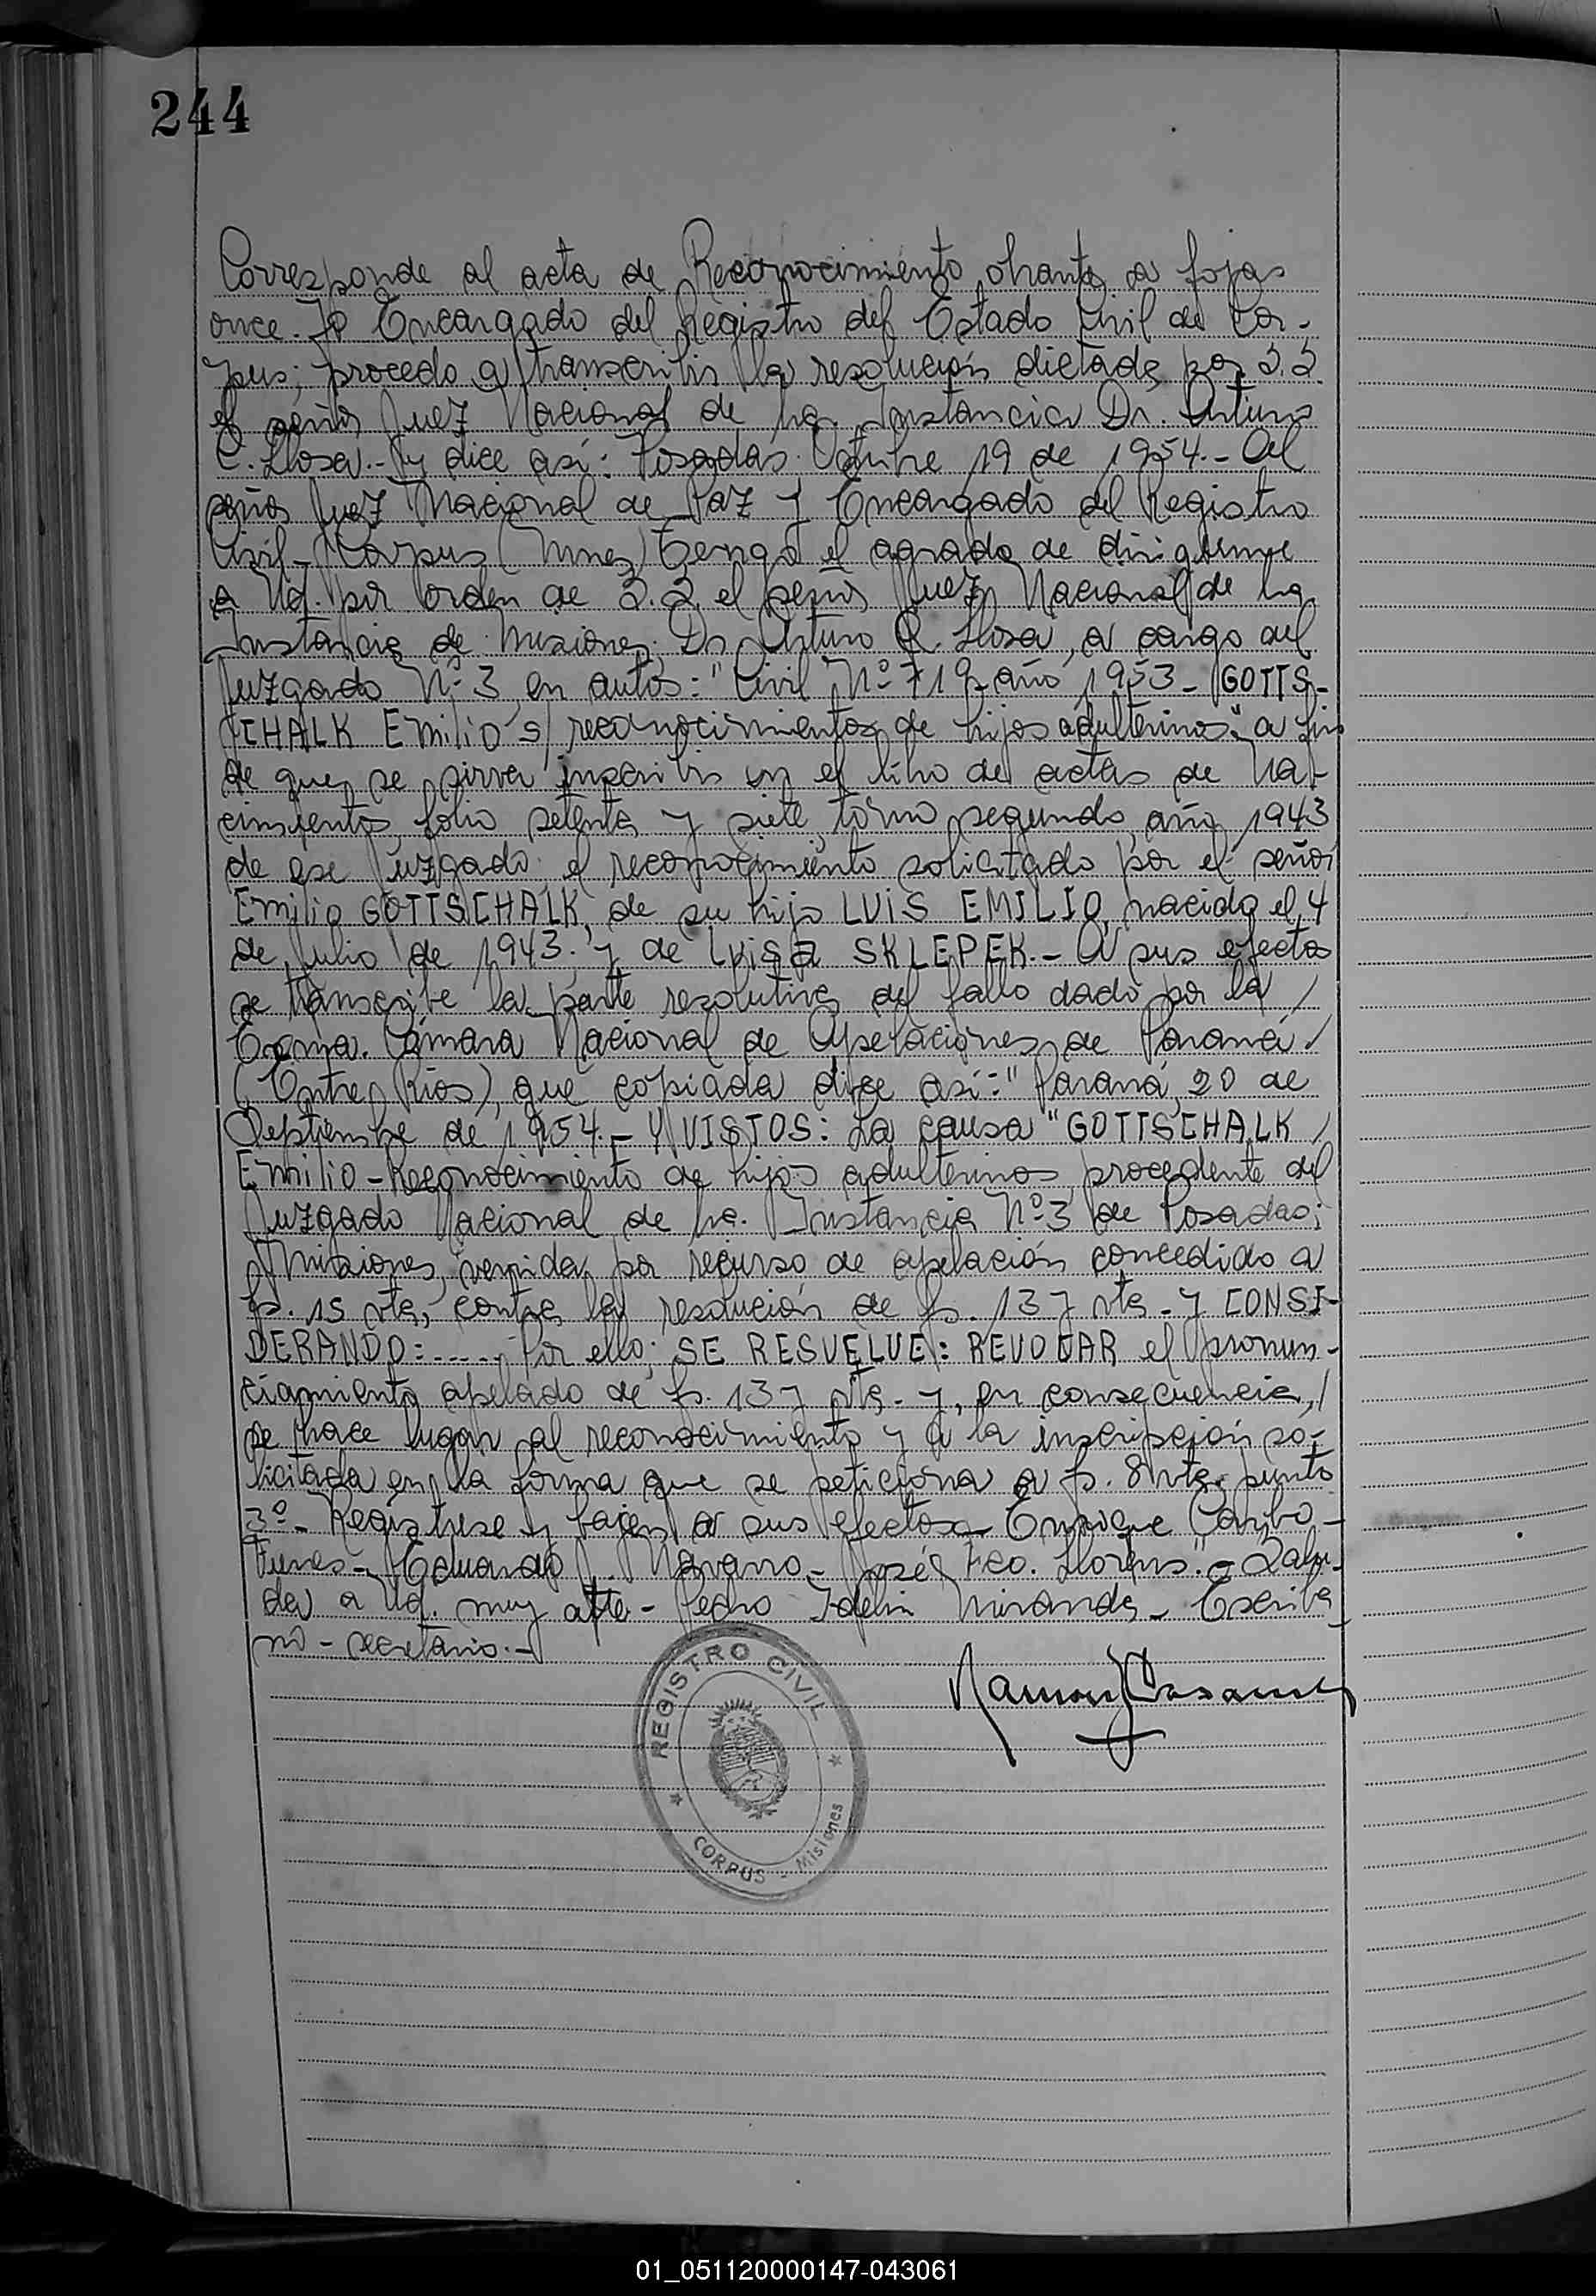 244
Corresponde al acta de Reconocimiento obrante a fojas
once. Yo Encargado del Registro del Estado Civil de Cor-
pus; procedo a transcribir la resolución dictada por S.S.
el señor Juez Nacional de 1ra. Instancia Dr. Arturo
C. Llosa.- y dice así: Posadas Octubre 19 de 1954.- Al
señor Juez Nacional de Paz y Encargado del Registro
Civil - Corpus (Mnes) Tengo el agrado de dirigirme
a Ud. por orden de S.S. el señor Juez Nacional de 1ra
Instancia de Misiones Dr. Arturo C. Llosa, a cargo del
Juzgado Nº 3, en autos: "Civil Nº 719 año 1953 - GOTTS-
CHALK Emilio s/ reconocimientos de hijos adulterinos" a fin
de que se sirva inscribir en el libro de actas de Na-
cimientos, folio setenta y siete, tomo segundo, año 1943
de ese Juzgado el reconocimiento solicitado por el señor
Emilio GOTTSCHALK, de su hijo LUIS EMILIO, nacido el 4
de Julio de 1943. y de Luisa SKLEPEK.- A sus efectos
se transcribe la parte resolutiva del fallo dado por la /
Excma. Cámara Nacional de Apelaciones de Paraná /
(Entre Rios), que copiada dice así: "Paraná, 20 de
Septiembre de 1954.- Y VISTOS: La causa "GOTTSCHALK /
Emilio - Reconocimiento de hijos adulterinos, procedente del
Juzgado Nacional de 1ra. Instancia Nº 3 de Posadas;
Misiones, venida por recurso de apelación concedido a
fs. 15 vta, contra la resolución de fs. 13 y vta - y CONSI-
DERANDO: ..... Por ello; SE RESUELVE: REVOCAR el pronun-
ciamiento apelado de fs. 13 y vta - y, en consecuencia, /
se hace lugar al reconocimiento y a la inscripción so-
licitada en la forma que se peticiona a fs. 8 vta, punto
3º - Regístrese y bajen a sus efectos - Enrique Carbó
Funes - Eduardo Navarro - José Fco. Llorens" - Salu-
da a Ud. muy atte - Pedro Miranda - Escriba
no - secretario.-
REGISTRO CIVIL
CORPUS - Misiones
01_051120000147-043061